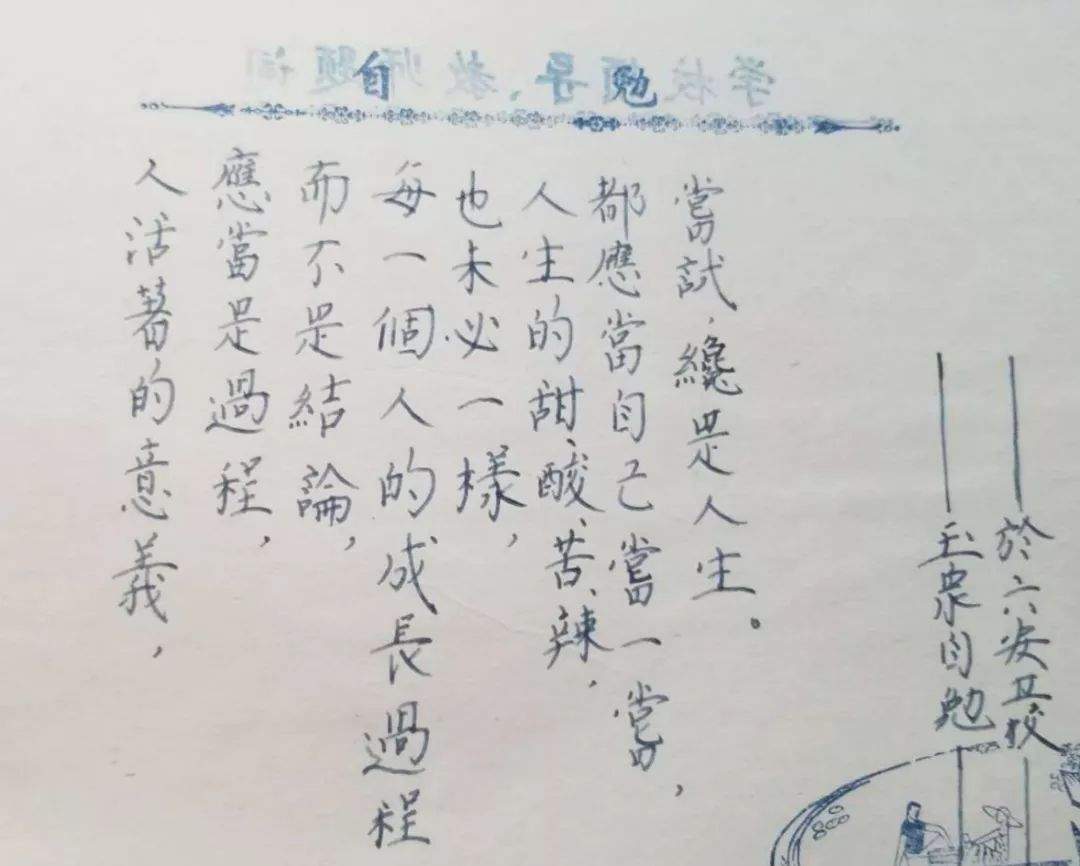 学校领导、教师题词
自勉
人活著的意義，
應當是過程，
而不是結論，
每一個人的成長過程
也未必一樣，
人生的甜、酸、苦、辣，
都應當自己嘗一嘗，
嘗試，纔是人生。
——玉衆自勉
——於六安卫校